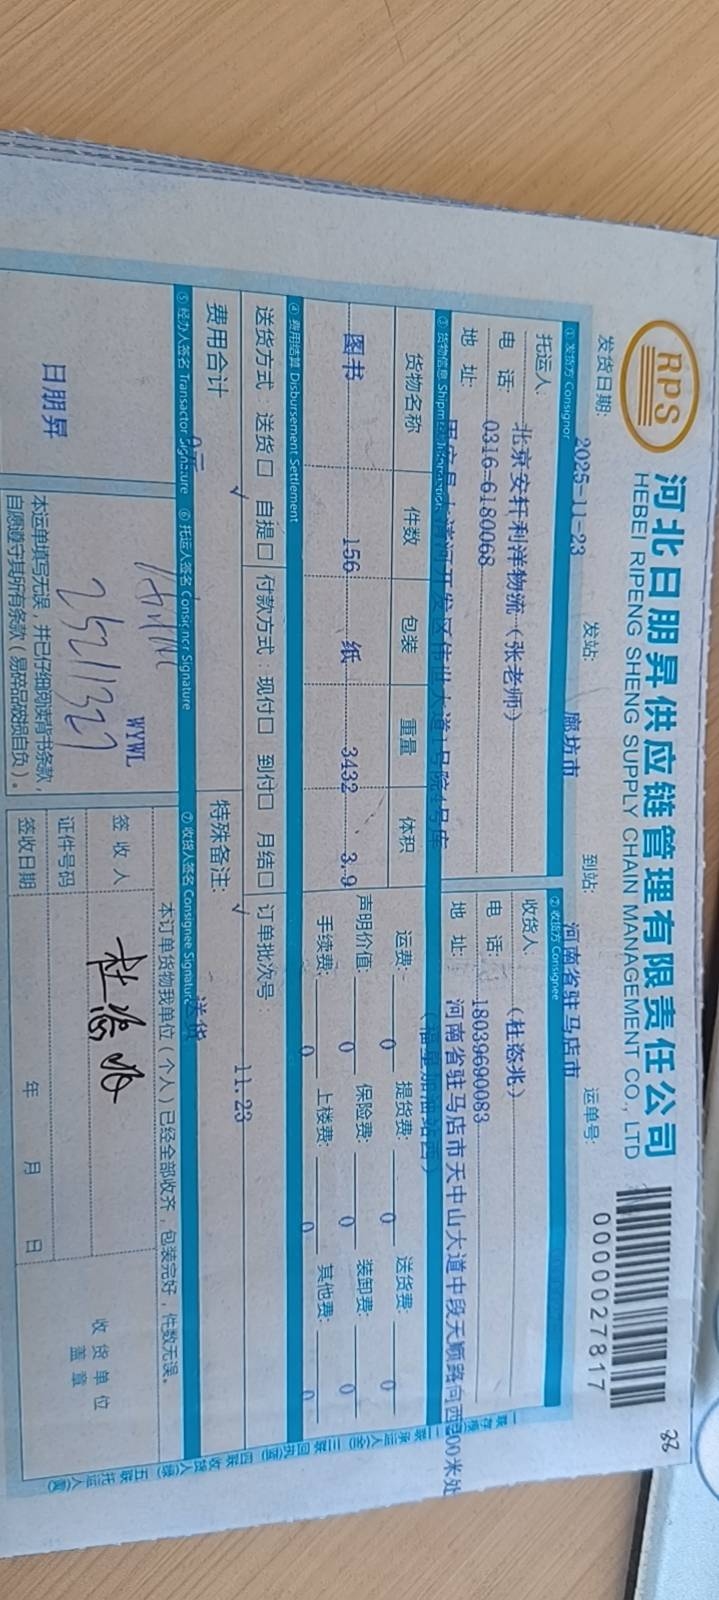 RPS
河北日朋昇供应链管理有限责任公司
HEBEI RIPENG SHENG SUPPLY CHAIN MANAGEMENT CO., LTD
0000027817
发货日期: 2025-11-23 发站: 廊坊市 到站: 河南省驻马店市 运单号:
① 发货方 Consignor ② 收货方 Consignee
托运人: 北京安轩利洋物流(张老师) 收货人: (杜悐兆)
电 话: 0316-6180068 电 话: 18039690083
地 址: 地 址: 河南省驻马店市天中山大道中段天顺路向西300米处
(福星加油站西)
③ 货物信息 Shipment Information
货物名称 件数 包装 重量 体积 运费: 0 提货费: 0 送货费: 0
图书 156 纸 3432 3.9 声明价值: 0 保险费: 0 装卸费: 0
手续费: 0 上楼费: 0 其他费: 0
④ 费用结算 Disbursement Settlement
送货方式: 送货□ 自提□ 付款方式: 现付□ 到付□ 月结□ 订单批次号: 11.23
√ √
费用合计 特殊备注: 送货
⑤ 经办人签名 Transactor Signature ⑥ 托运人签名 Consignor Signature ⑦ 收货人签名 Consignee Signature
日朋昇
WYWL
本运单填写无误,并已仔细阅读背书条款,
自愿遵守其所有条款(易碎品破损自负)。
本订单货物我单位(个人)已经全部收齐,包装完好,件数无误。
签 收 人
证件号码
签收日期 年 月 日
收 货 单 位
盖 章